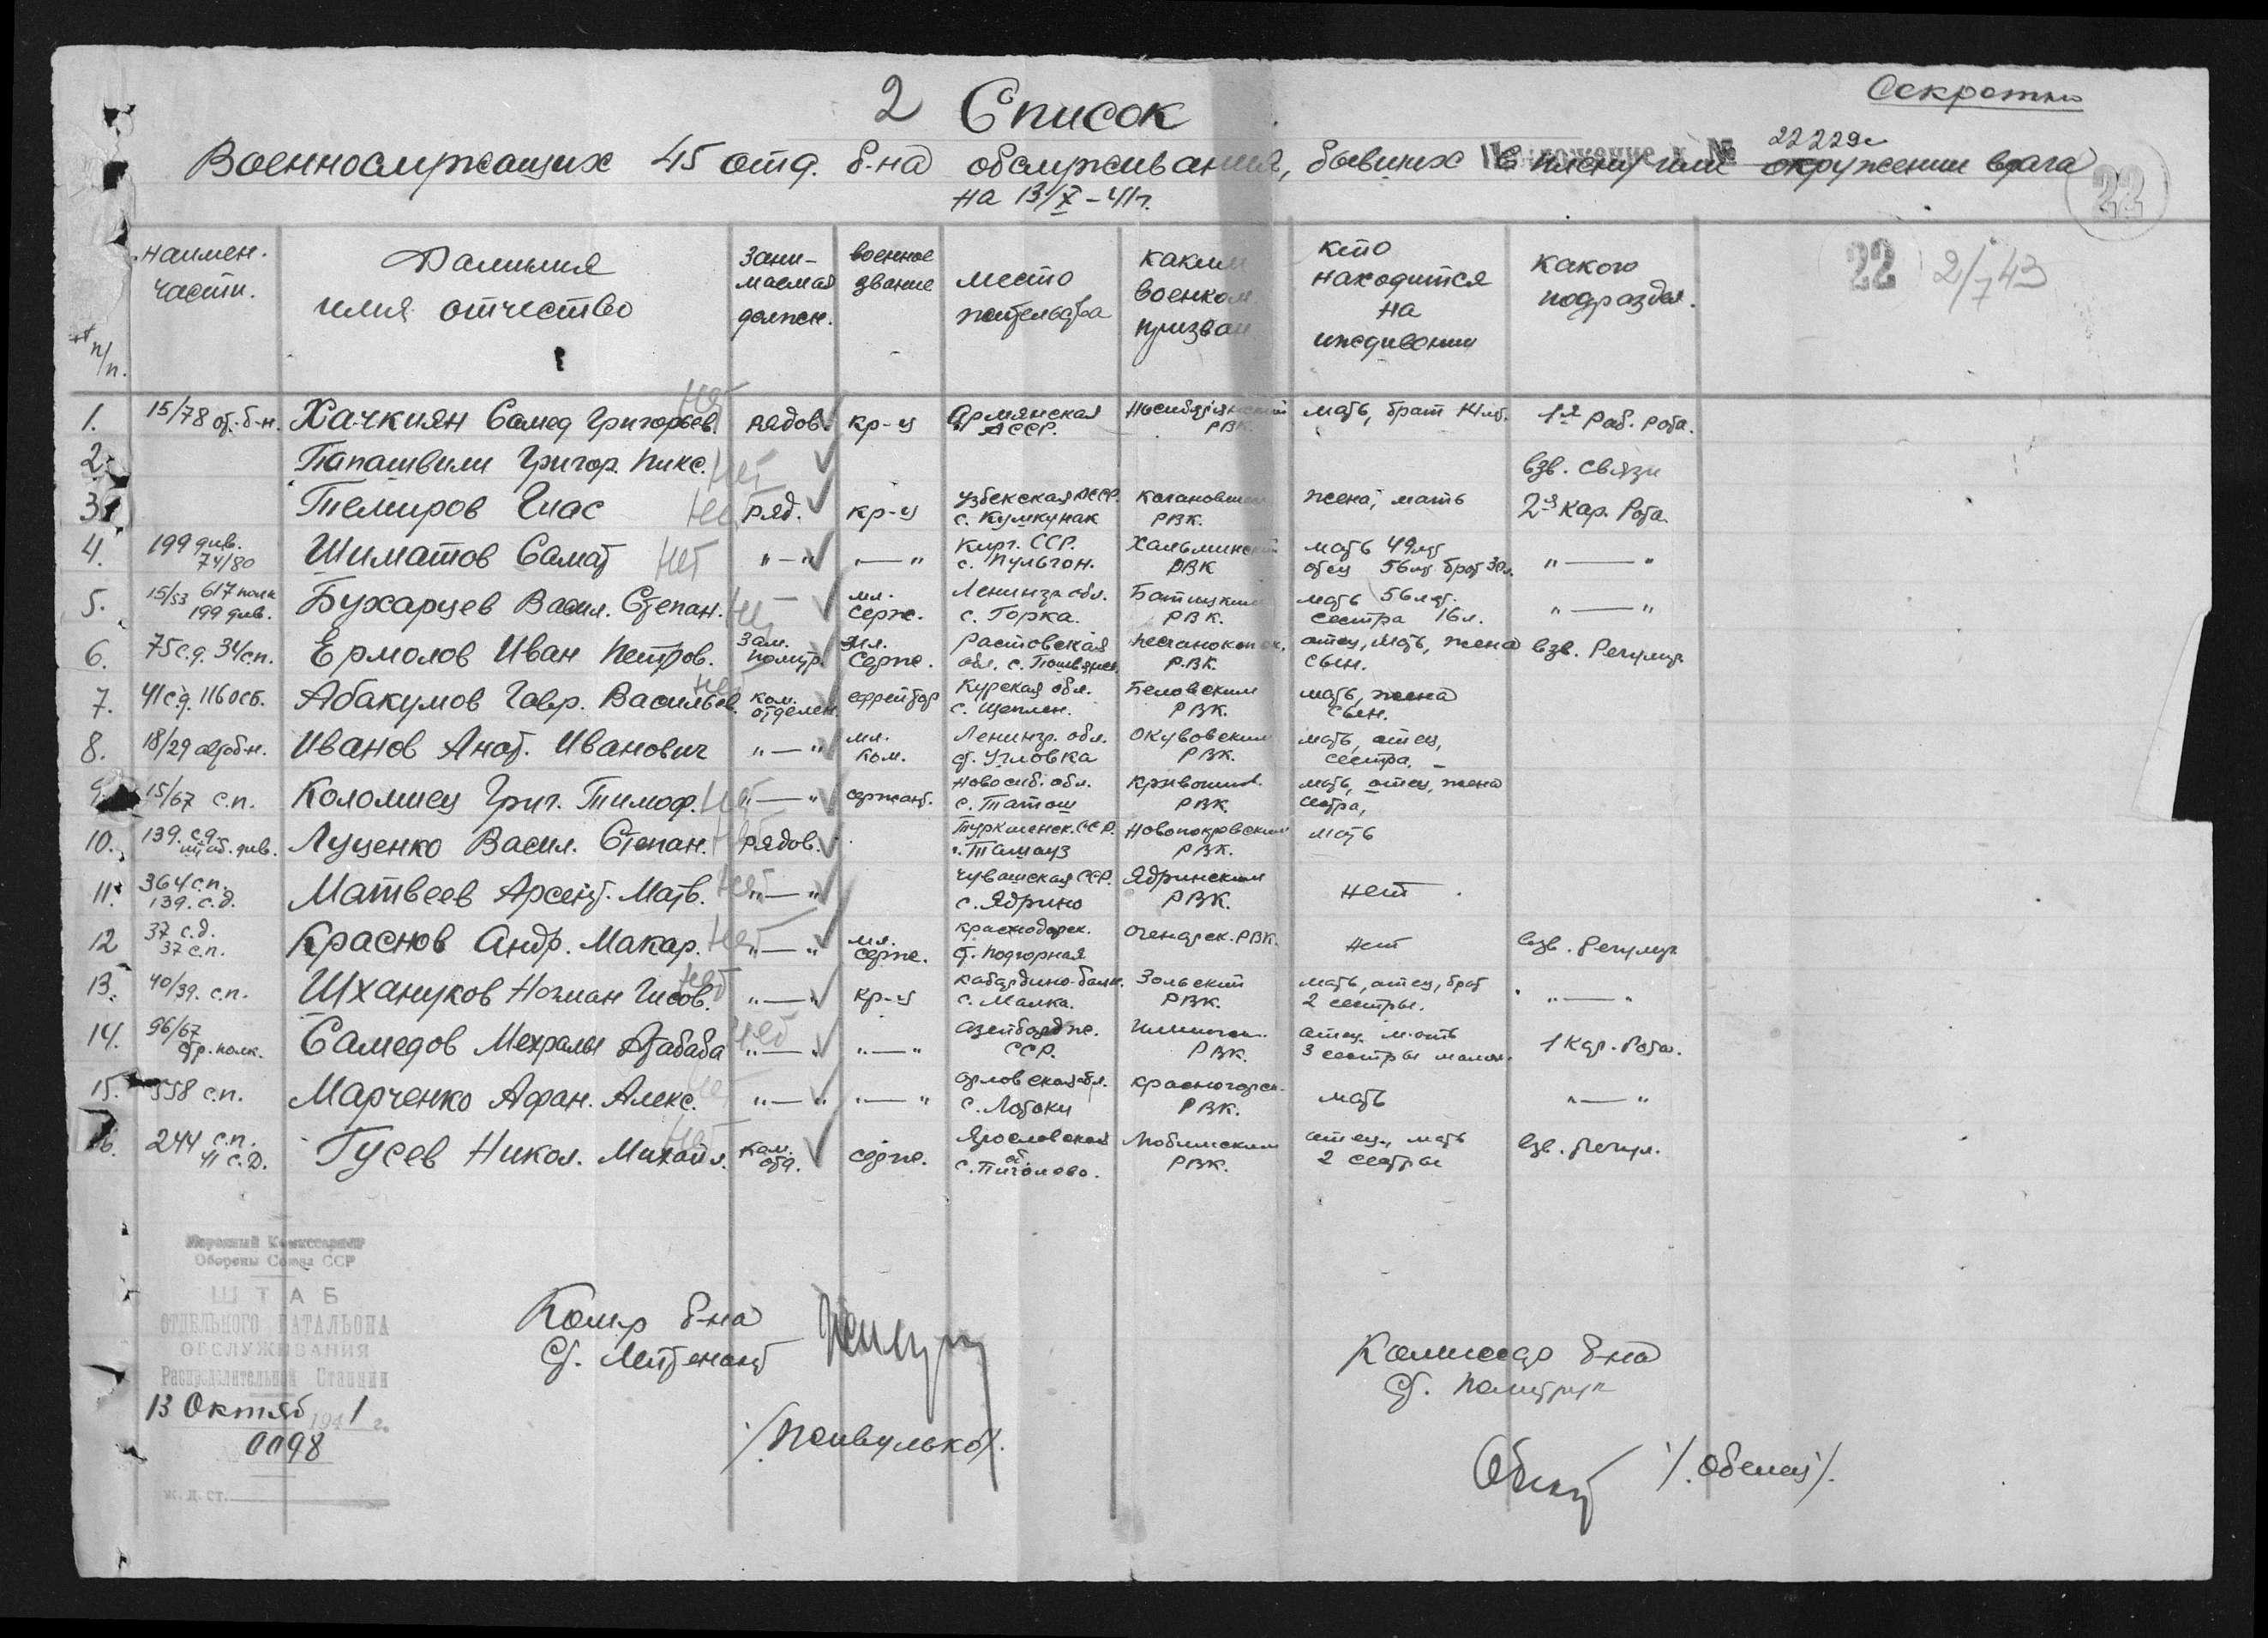 Секретно
2 Список
22229с
Приложение к №
Военнослужащих 45 отд. б-на обслуживания, бывших в плену или окружении врага
на 13/X-41г.
22
22 2/7 43
№ п/п.
наимен. части.
Фамилия имя отчество
Зани-маемая должн.
военное звание
место жительства
каким военком призван
кто находится на иждивении
какого подраздел.
1. 15/78 от. б-н. Хачкиян Самед Григорьев. Нет рядов. кр-ц Армянская АССР. РВК мать, брат 14 лет. 1я раб. рота.
2. Папашвили Григор. Пикс. Нет взв. связи
3. Темиров Гиас Нет ряд. кр-ц Узбекская АССР. с. Кумкунак РВК. жена, мать 2я Кар. Рота.
4. 199 див. 74/80 Шиматов Самат Нет "—" "—" Кирг. ССР. с. Пульгон. Хальминский РВК мать 49 лет отец 56 лет брат 30л. "—"
5. 15/53 617 полк 199 див. Бухарцев Васил. Степан. Нет — мл. серж. Ленингр. обл. с. Горка. РВК. мать 56 лет. сестра 16 л. "—"
6. 75 с.д. 34 с.п. Ермолов Иван Петров. Зам. политр. Мл. Серж. Ростовская обл. с. Песчанокопск. Р.ВК. отец, мать, жена сын. взв. Регулир.
7. 41 с.д. 116 осб. Абакумов Гавр. Васильев. нет ком. отделен. ефрейтор Курская обл. с. Щеплен. Беловским РВК. мать, жена сын.
8. 18/29 автоб-н. Иванов Анат. Иванович "—" мл. ком. Ленингр. обл. ст. Угловка Окуловским РВК. мать, отец, сестра. –
9. 15/67 с.п. Коломиец Григ. Тимоф. Нет "—" сержант. Новосиб. обл. с. Таташ Кривошин. РВК. мать, отец, жена сестра,
10. 139 с.д. шт. див. Луценко Васил. Степан. Нет Рядов. Туркменск. ССР. г. Ташауз Новопокровским РВК. мать
11. 364 с.п. 139. с.д. Матвеев Арсент. Матв. Нет "—" Чувашская ССР. с. Ядрино Ядринским РВК. нет.
12 37 с.д. 37 с.п. Краснов Андр. Макар. Нет "—" мл. серж. Краснодарск. ст. Подгорная РВК. нет взв. Регулир.
13. 40/39. с.п. Шхануков Нонман Гисов. Нет "—" кр-ц Кабардино-балк. с. Малка. Зольский РВК. мать, отец, брат 2 сестры. "—"
14. 96/67 стр. полк. Самедов Мехралы Атабаба Нет "—" "—" Азейбардж. ССР. РВК. отец мать 3 сестры малол. 1 Кар. Рота.
15. 558 с.п. Марченко Афан. Алекс. Нет "—" "—" Орловская обл. с. Лотоки Красногорск. РВК. мать "—"
16. 244 с.п. 41 с.д. Гусев Никол. Михайл. Нет Ком. отд. серж. Ярославская об. с. Пигалово. Любимским РВК. отец, мать 2 сестры взв. Регул.
Народный Комиссариат
Обороны Союза ССР
ШТАБ
ОТДЕЛЬНОГО БАТАЛЬОНА
ОБСЛУЖИВАНИЯ
Распределительной Станции
13 Октяб 1941 г.
0098
ж. д. ст.
Комр б-на
Ст. Лейтенант
/Пшивулько/.
Комиссар б-на
Ст. политрук